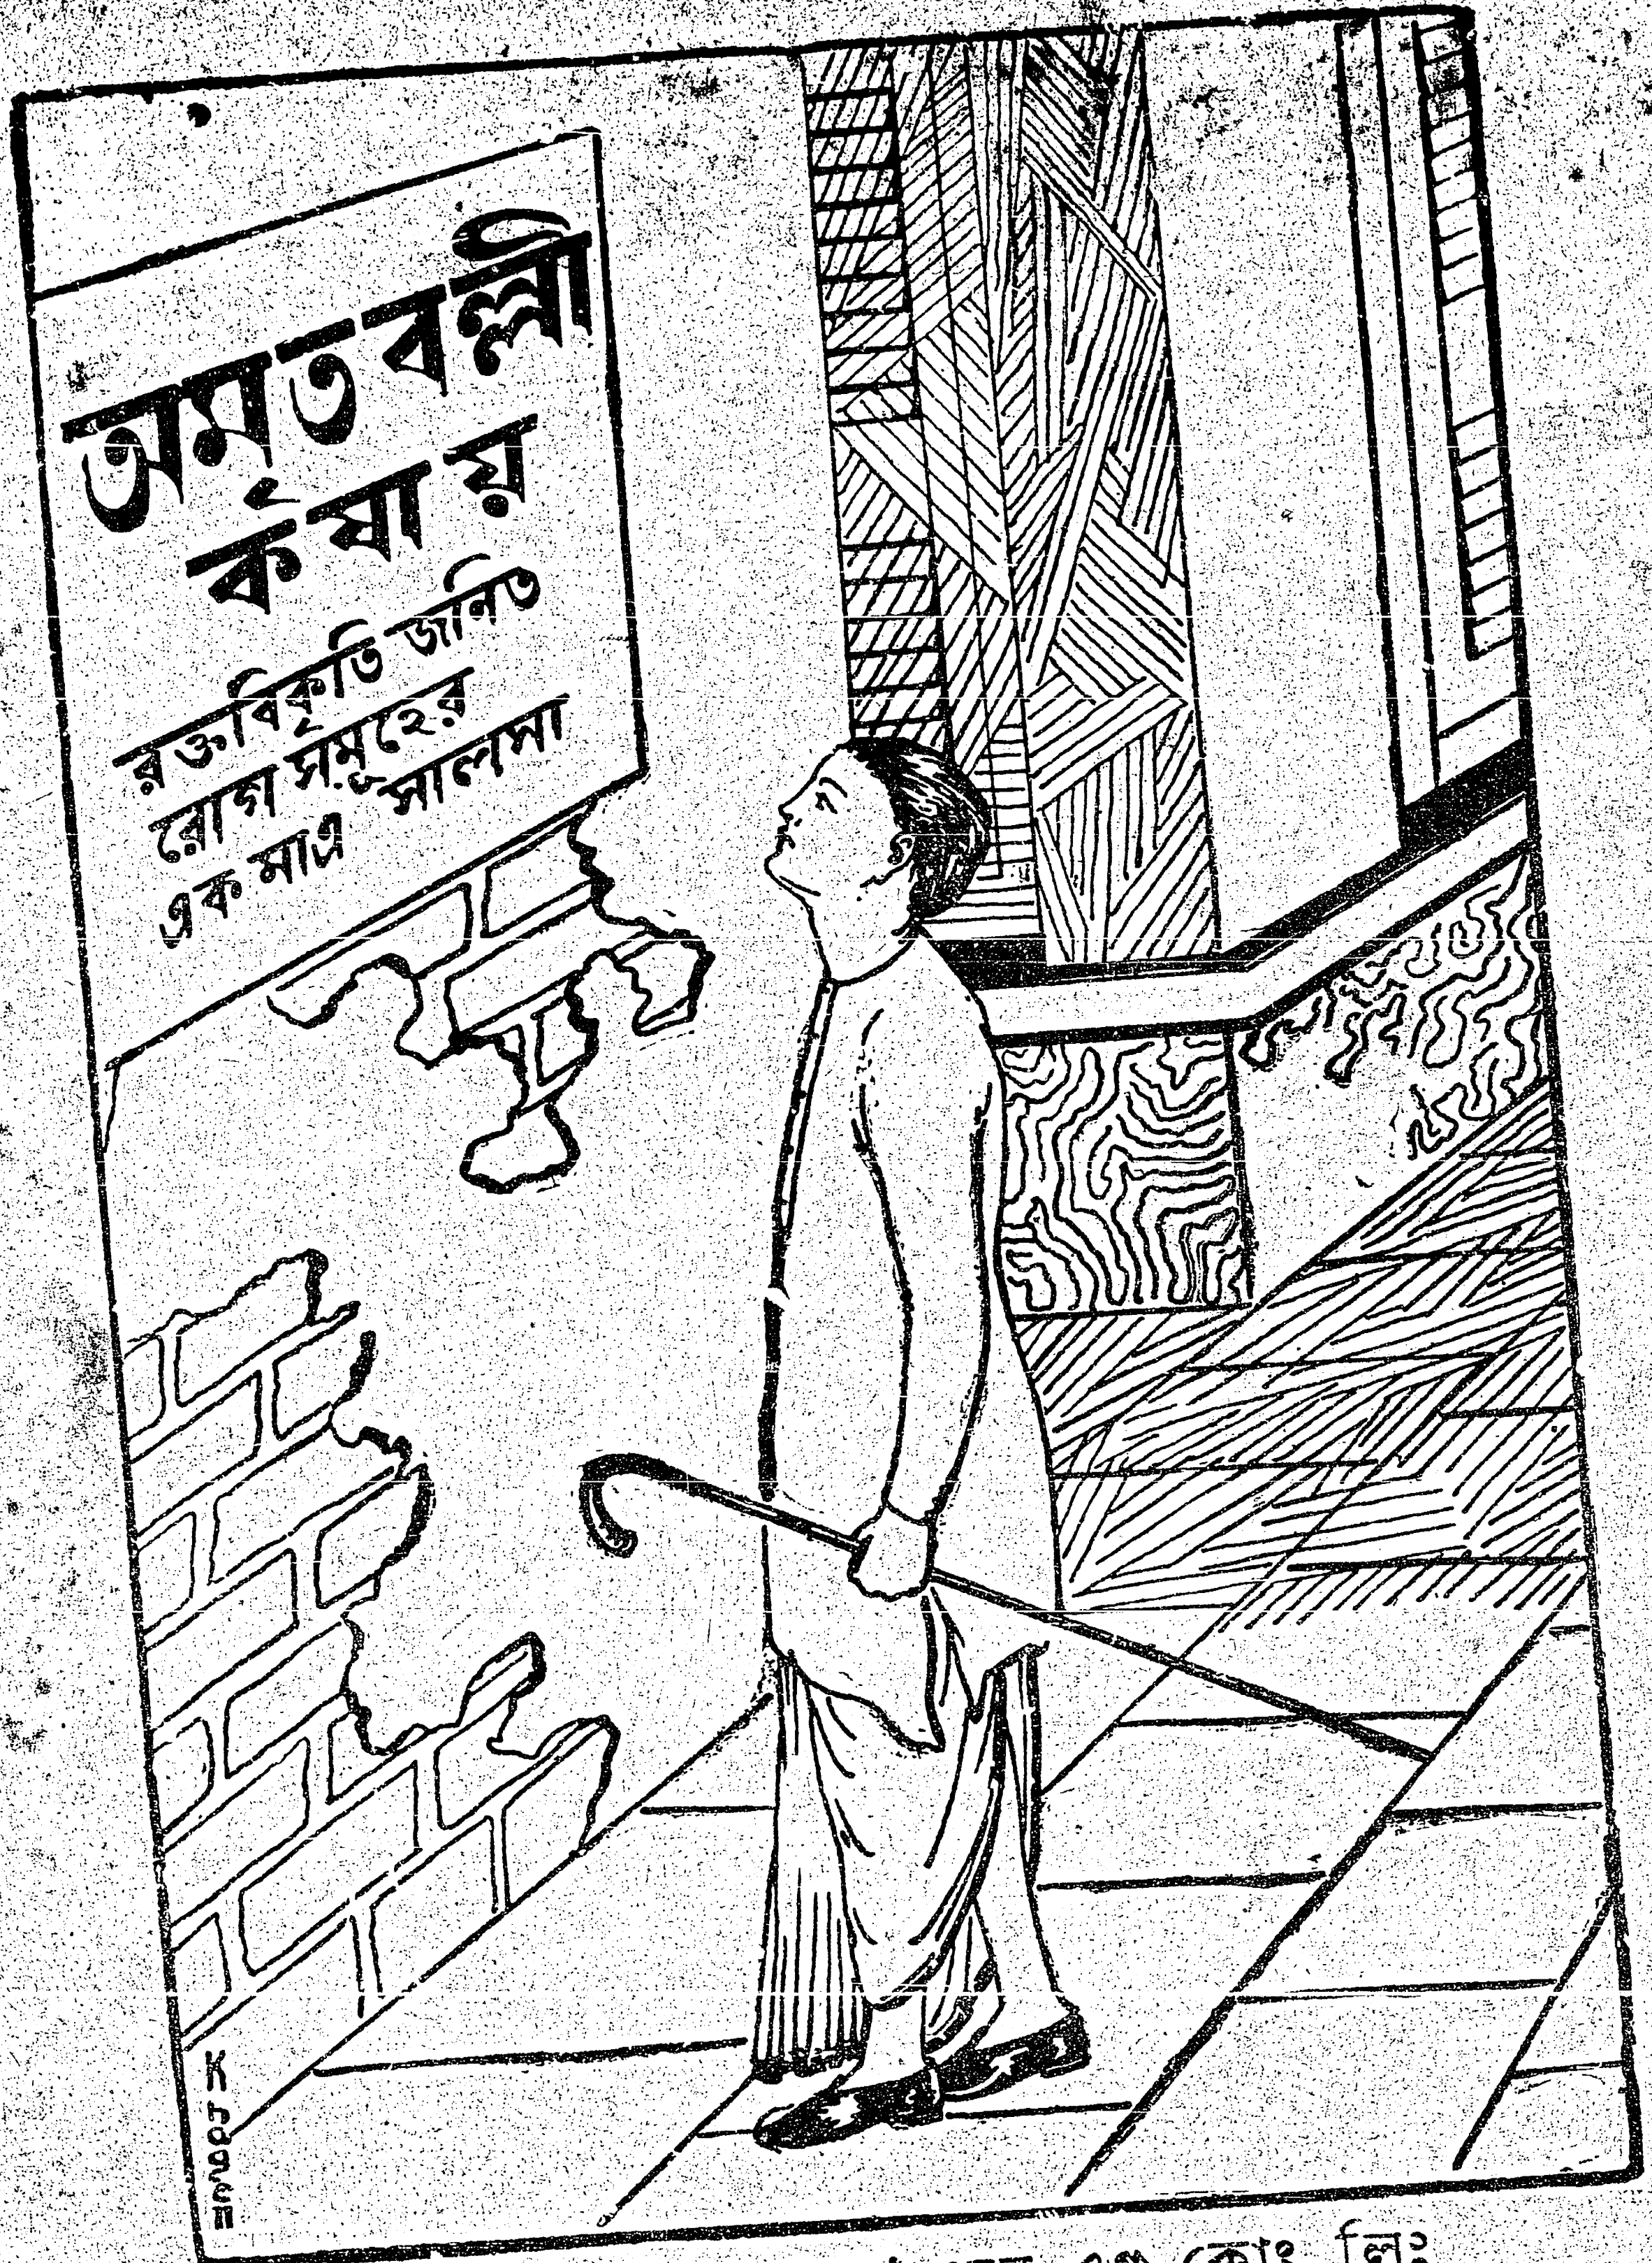 অমৃতবল্লী
কষায়
রক্তবিকৃতি জনিত
রোগ সমূহের
এক মাত্র সালসা
কোং লিঃ